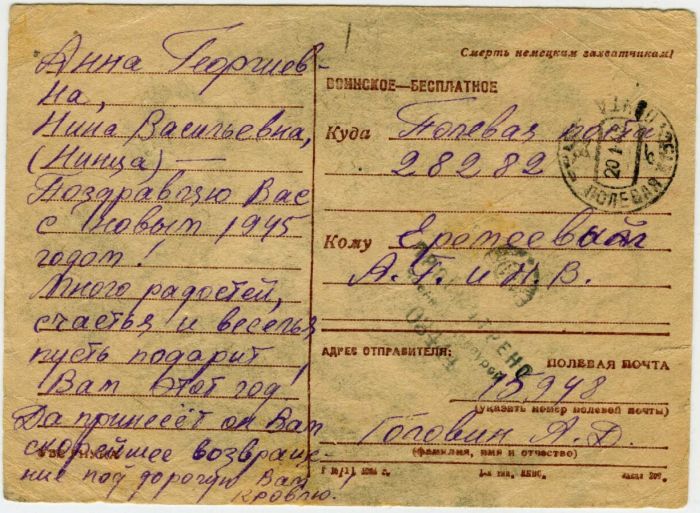 Анна Георгиев-
на,
Нина Васильевна,
(Нинца) —
Поздравляю Вас
с новым 1945
годом!
Много радостей,
счастья и веселья
пусть подарит
Вам этот год!
Да принесёт он Вам
скорейшее возвраще-
ние под дорогую Вам
кровлю.
Смерть немецким захватчикам!
ВОИНСКОЕ—БЕСПЛАТНОЕ
Куда Полевая почта
28282
ПОЛЕВАЯ
20 1
Кому
А. Г. и Н. В.
ПРОСМОТРЕНО
АДРЕС ОТПРАВИТЕЛЯ:
ПОЛЕВАЯ ПОЧТА
15948
(указать номер полевой почты)
Головин А. Д.
(фамилия, имя и отчество)